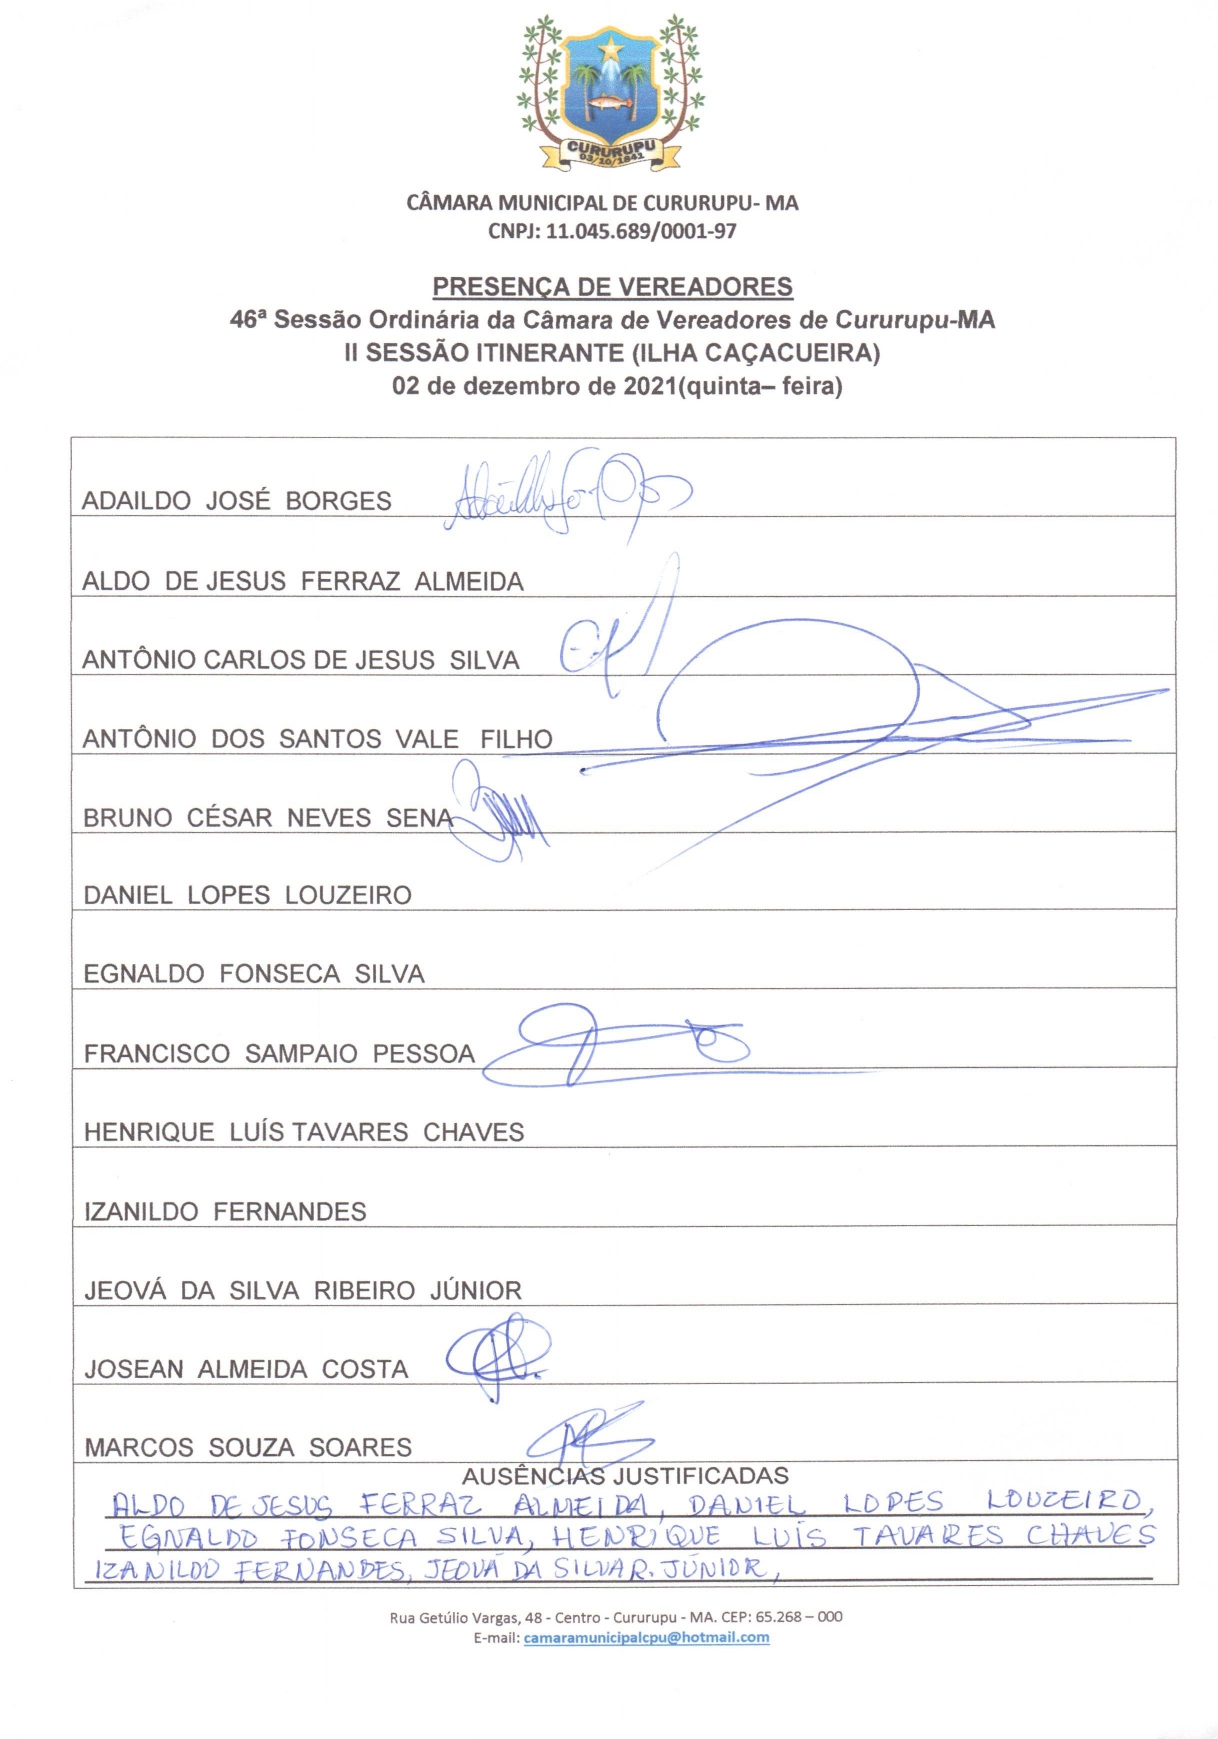 CURURUPU
03/10/1841
CÂMARA MUNICIPAL DE CURURUPU- MA
CNPJ: 11.045.689/0001-97
PRESENÇA DE VEREADORES
46ª Sessão Ordinária da Câmara de Vereadores de Cururupu-MA
II SESSÃO ITINERANTE (ILHA CAÇACUEIRA)
02 de dezembro de 2021(quinta– feira)
ADAILDO JOSÉ BORGES
ALDO DE JESUS FERRAZ ALMEIDA
ANTÔNIO CARLOS DE JESUS SILVA
ANTÔNIO DOS SANTOS VALE FILHO
BRUNO CÉSAR NEVES SENA
DANIEL LOPES LOUZEIRO
EGNALDO FONSECA SILVA
FRANCISCO SAMPAIO PESSOA
HENRIQUE LUÍS TAVARES CHAVES
IZANILDO FERNANDES
JEOVÁ DA SILVA RIBEIRO JÚNIOR
JOSEAN ALMEIDA COSTA
MARCOS SOUZA SOARES
AUSÊNCIAS JUSTIFICADAS
ALDO DE JESUS FERRAZ ALMEIDA, DANIEL LOPES LOUZEIRO,
EGNALDO FONSECA SILVA, HENRIQUE LUÍS TAVARES CHAVES
IZANILDO FERNANDES, JEOVÁ DA SILVA R. JÚNIOR,
Rua Getúlio Vargas, 48 - Centro - Cururupu - MA. CEP: 65.268 – 000
E-mail: camaramunicipalcpu@hotmail.com